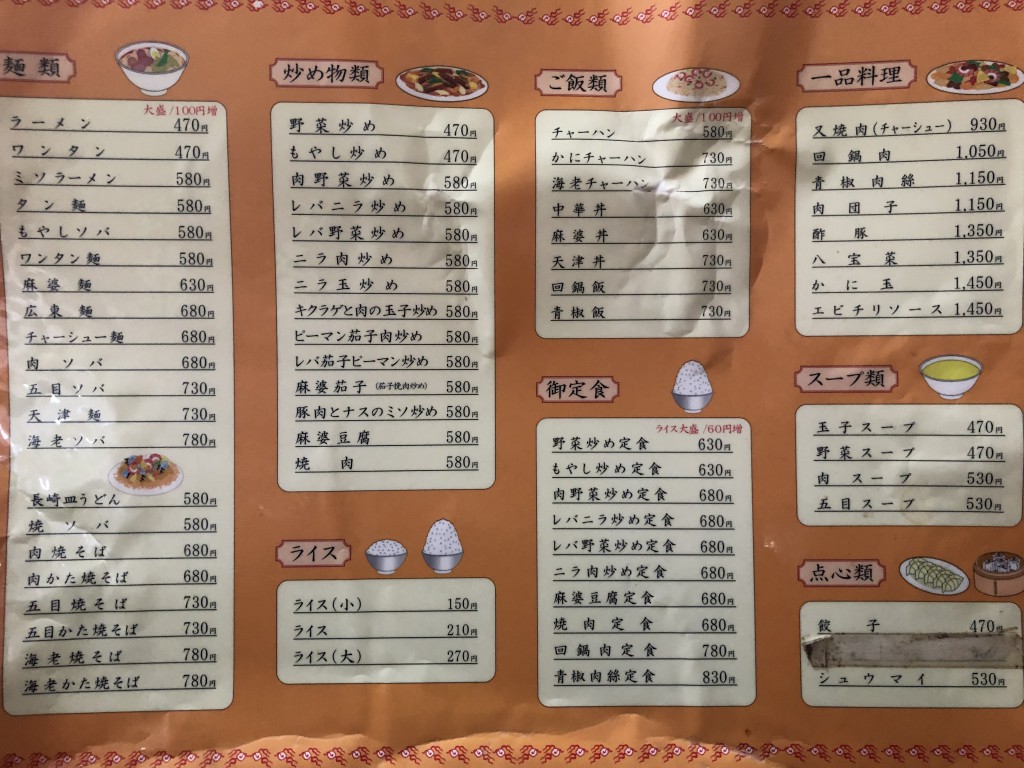 麺類
大盛/100円増
ラーメン 470円
ワンタン 470円
ミソラーメン 580円
タン麺 580円
もやしソバ 580円
ワンタン麺 580円
麻婆麺 630円
広東麺 680円
チャーシュー麺 680円
肉ソバ 680円
五目ソバ 730円
天津麺 730円
海老ソバ 780円
長崎皿うどん 580円
焼ソバ 580円
肉焼そば 680円
肉かた焼そば 680円
五目焼そば 730円
五目かた焼そば 730円
海老焼そば 780円
海老かた焼そば 780円
炒め物類
野菜炒め 470円
もやし炒め 470円
肉野菜炒め 580円
レバニラ炒め 580円
レバ野菜炒め 580円
ニラ肉炒め 580円
ニラ玉炒め 580円
キクラゲと肉の玉子炒め 580円
ピーマン茄子肉炒め 580円
レバ茄子ピーマン炒め 580円
麻婆茄子(茄子挽肉炒め) 580円
豚肉とナスのミソ炒め 580円
麻婆豆腐 580円
焼肉 580円
ライス
ライス(小) 150円
ライス 210円
ライス(大) 270円
ご飯類
大盛/100円増
チャーハン 580円
かにチャーハン 730円
海老チャーハン 730円
中華丼 630円
麻婆丼 630円
天津丼 730円
回鍋飯 730円
青椒飯 730円
御定食
ライス大盛/60円増
野菜炒め定食 630円
もやし炒め定食 630円
肉野菜炒め定食 680円
レバニラ炒め定食 680円
レバ野菜炒め定食 680円
ニラ肉炒め定食 680円
麻婆豆腐定食 680円
焼肉定食 680円
回鍋肉定食 780円
青椒肉絲定食 830円
一品料理
叉焼肉(チャーシュー) 930円
回鍋肉 1,050円
青椒肉絲 1,150円
肉団子 1,150円
酢豚 1,350円
八宝菜 1,350円
かに玉 1,450円
エビチリソース 1,450円
スープ類
玉子スープ 470円
野菜スープ 470円
肉スープ 530円
五目スープ 530円
点心類
餃子 470円
シュウマイ 530円